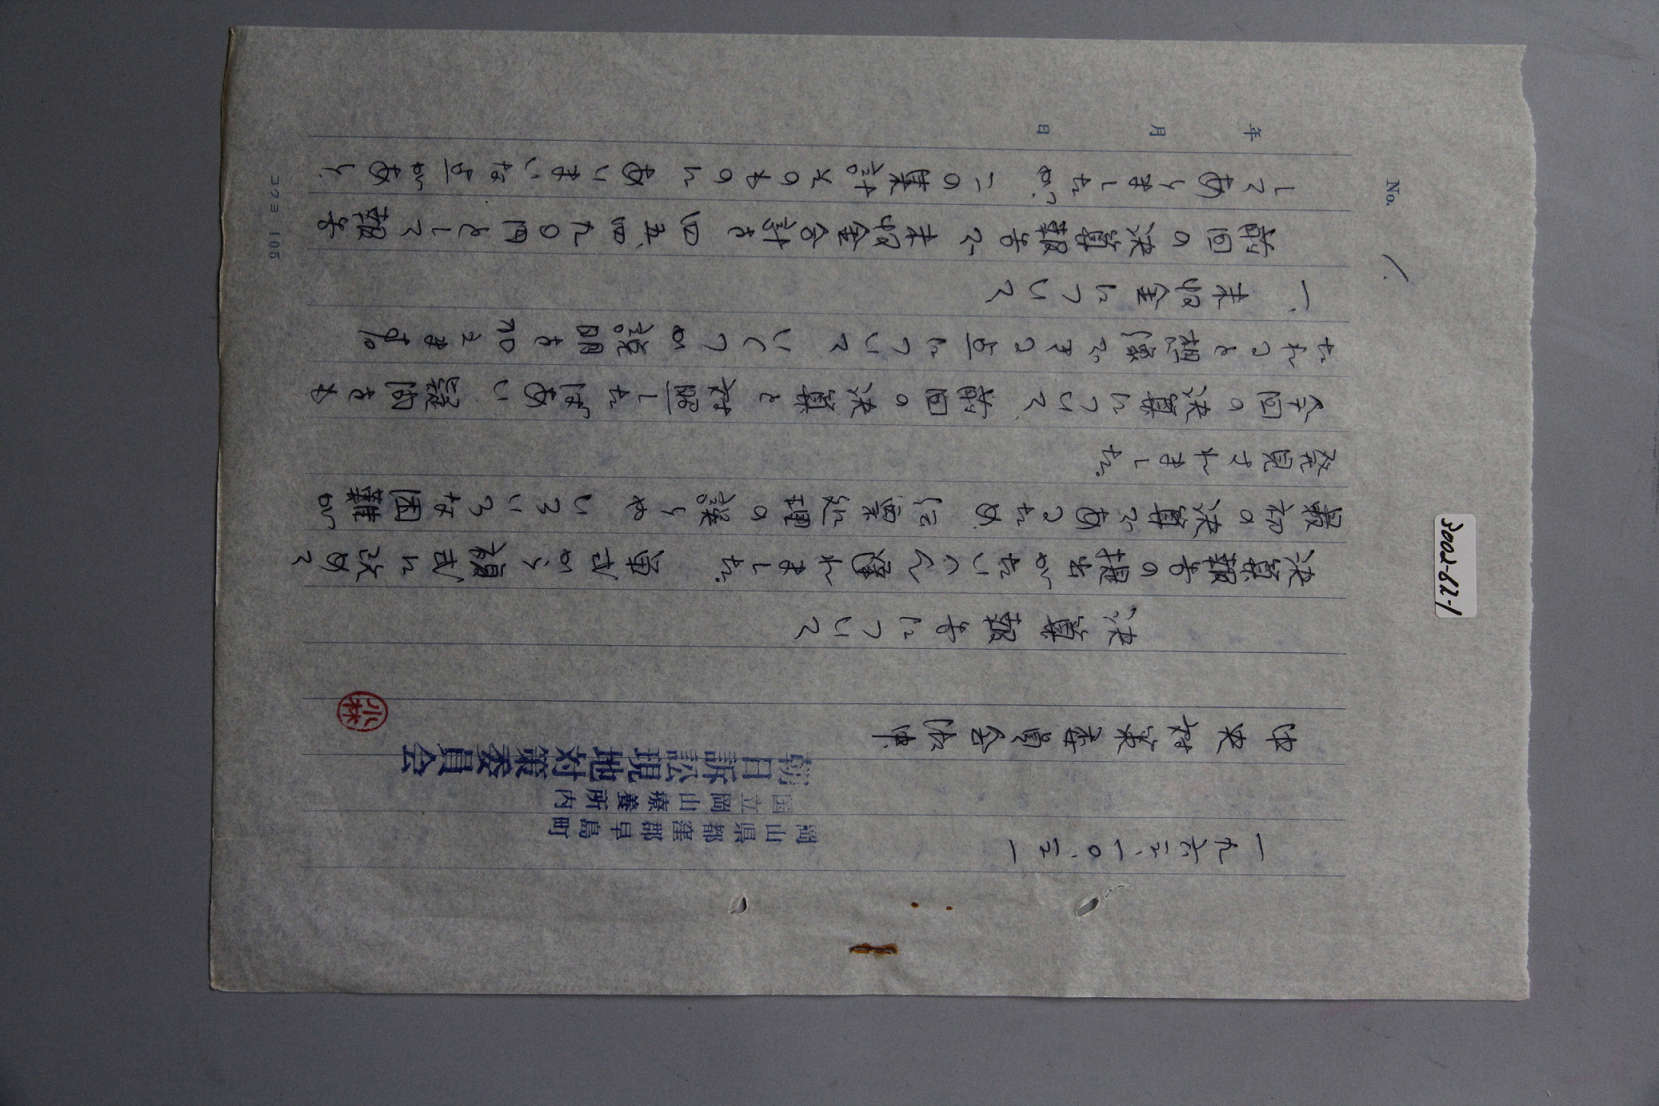 No. 1.
年 月 日
一九六三、一〇、三一
岡山県都窪郡早島町
国立岡山療養所内
朝日訴訟現地対策委員会
小林
中央対策委員会御中
決算報告について
決算報告の提出がたいへん遅れました。単式から複式に改めて
最初の決算であったため、伝票処理の誤りやいろいろな困難が
発見されました。
今回の決算について、前回の決算と対照したばあい、疑問をも
たれると想像できる点について、いくつか説明を加えます。
一、未収金について
前回の決算報告で未収金合計を四五、四九〇円として報告
してありましたが、この集計そのものにあいまいな点があり、
コクヨ 105
3002-62-1